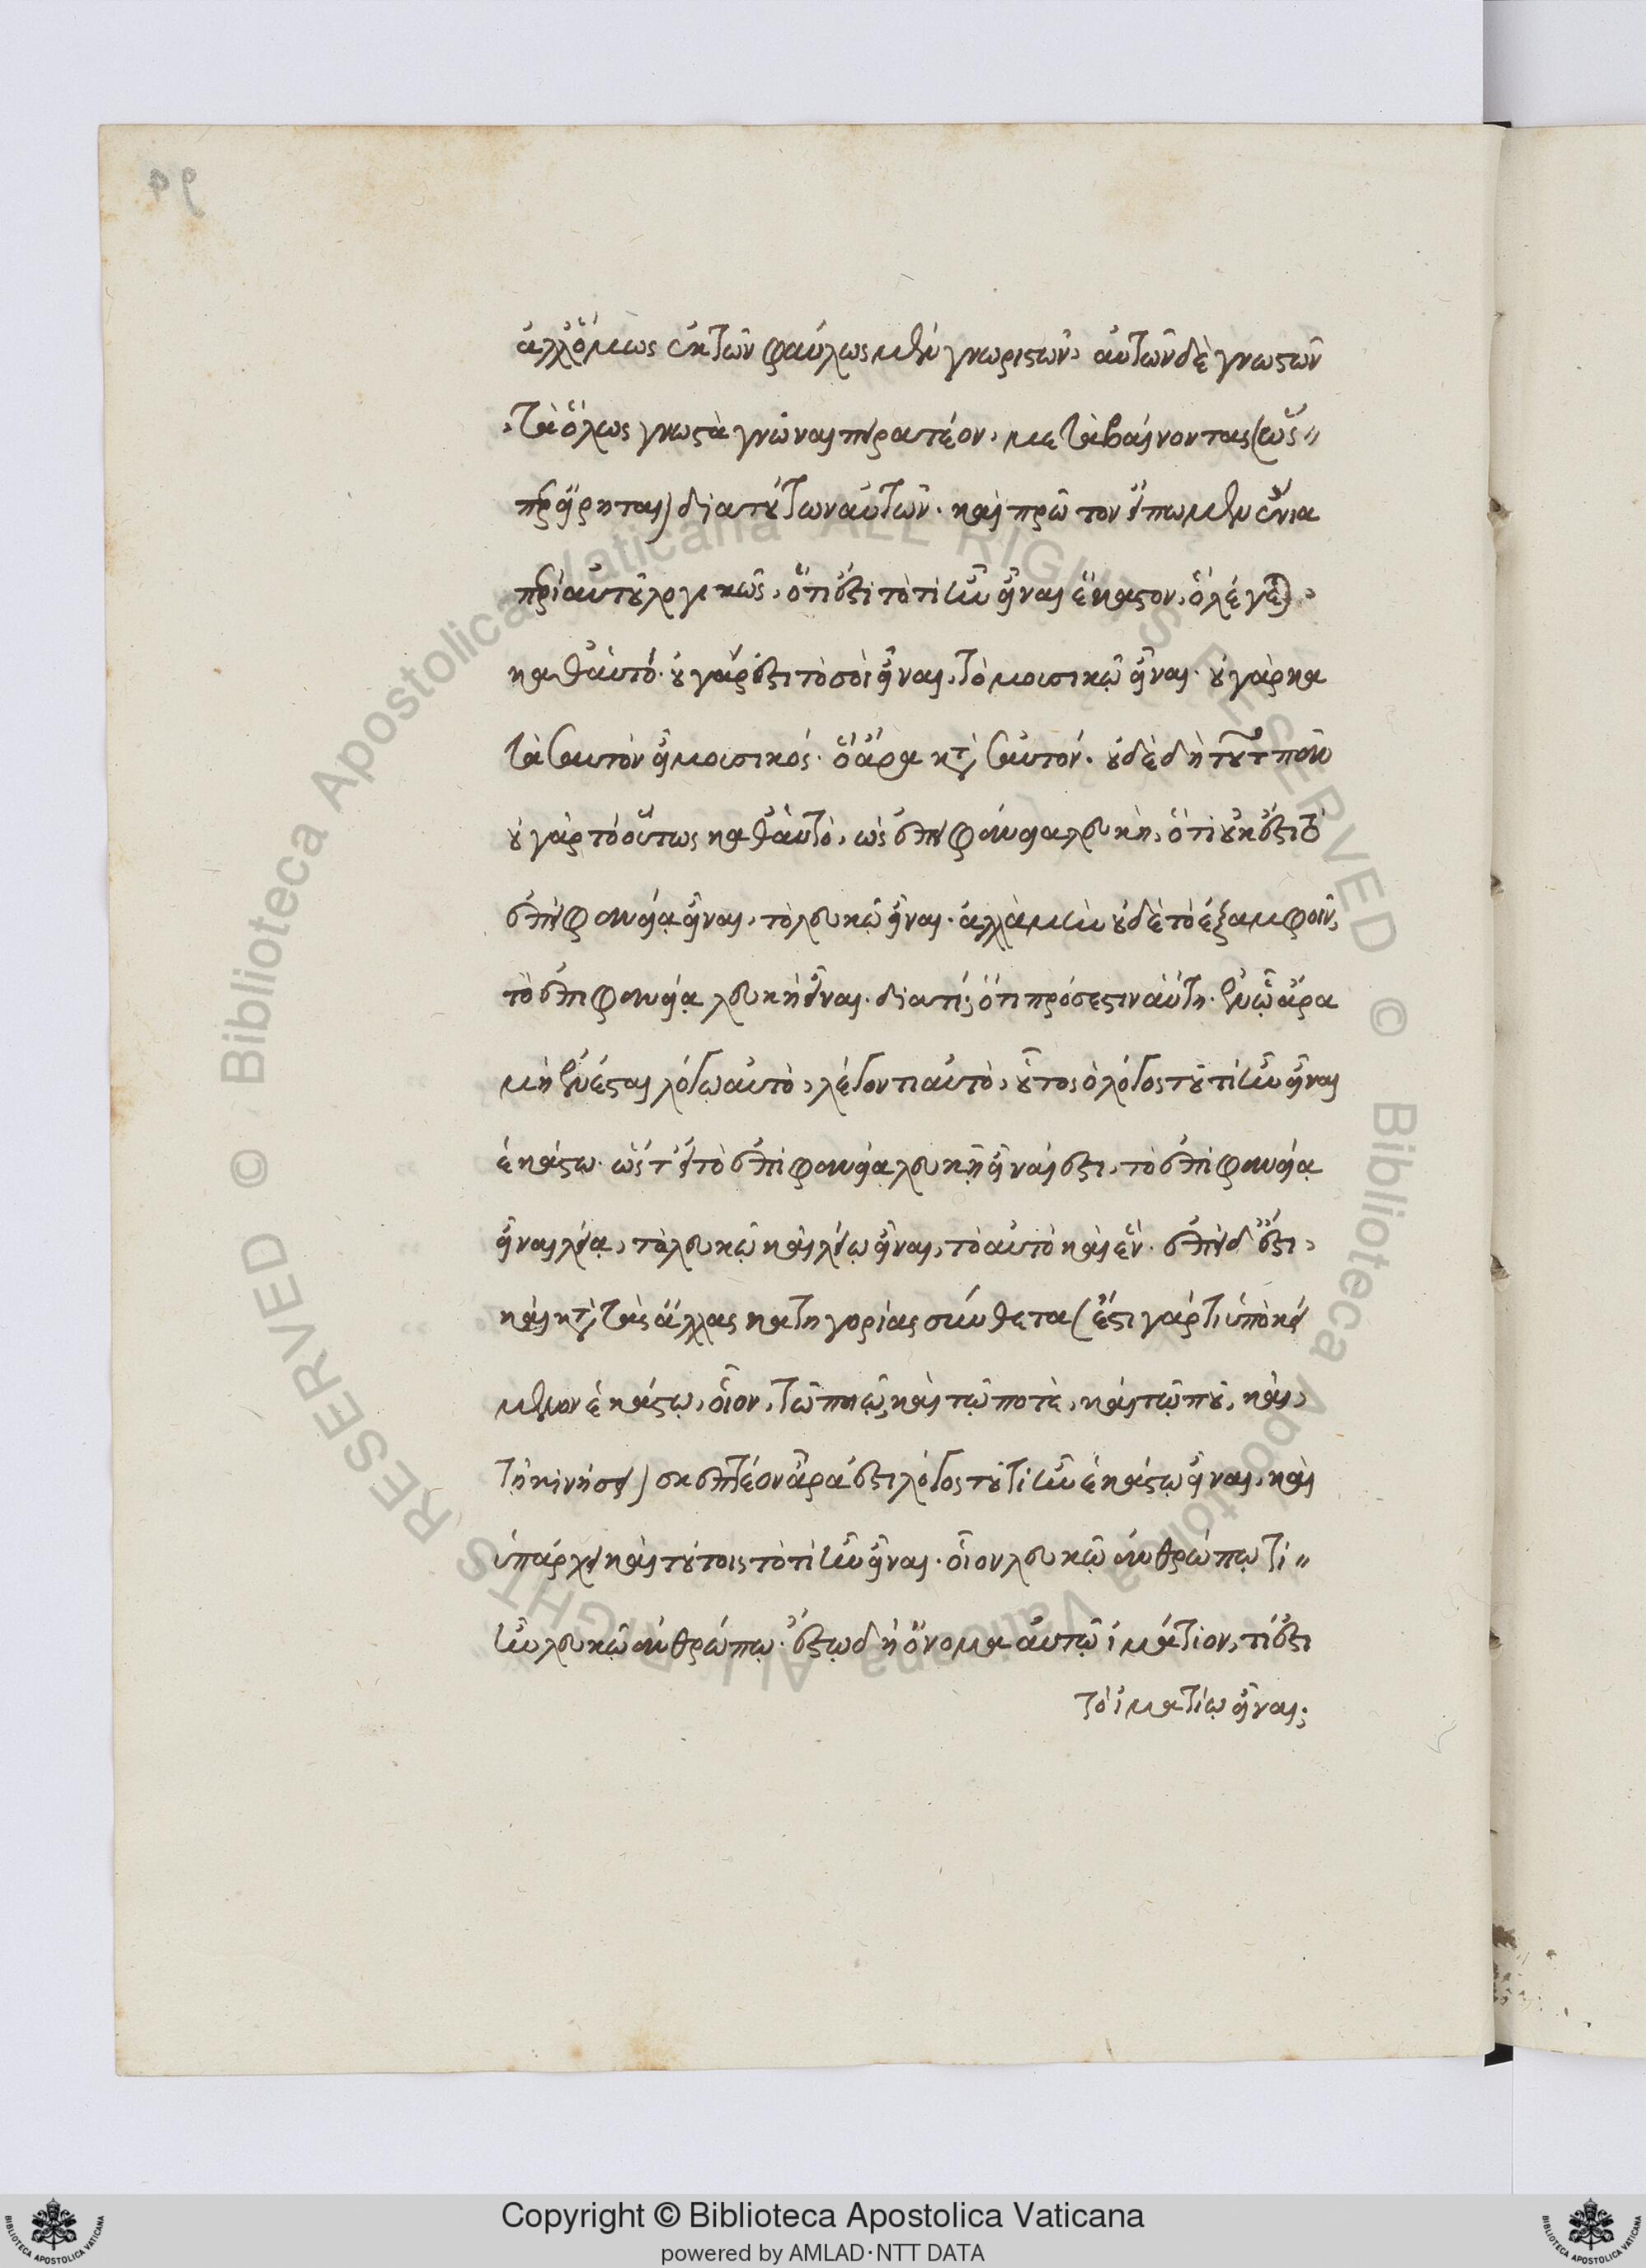 ἀλλ' ὅμως ἐκ τῶν φαύλως μὲν γνωριστῶν, αὐτῶν δὲ γνωστῶν
τὰ ὅλως γνωστὰ γνῶναι πειρατέον, μεταβαίνοντας (ὥσ〃
περ εἴρηται) διὰ τούτων αὐτῶν. καὶ πρῶτον εἴπωμεν ἔνια
περὶ αὐτοῦ λογικῶς, ὅτι ἐστὶ τὸ τί ἦν εἶναι ἕκαστον, ὃ λέγεται
καθ' αὑτό. οὐ γάρ ἐστι τὸ σοὶ εἶναι, τὸ μουσικῷ εἶναι. οὐ γὰρ κα
τὰ σαυτὸν εἶ μουσικός. ὃ ἄρα κατὰ σαυτόν. οὐδὲ δὴ τοῦτο πᾶν
οὐ γὰρ τὸ οὕτως καθ' αὑτὸ, ὡς ἐπιφανεία λευκὴ, ὅτι οὐκ ἔστι τὸ
ἐπιφανείᾳ εἶναι, τὸ λευκῷ εἶναι. ἀλλὰ μὴν οὐδὲ τὸ ἐξ ἀμφοῖν,
τὸ ἐπιφανείᾳ λευκῇ εἶναι. διατί; ὅτι πρόσεστιν αὐτή. ἐν ᾧ ἄρα
μὴ ἐνέσται λόγῳ αὐτὸ, λέγοντι αὐτὸ, οὗτος ὁ λόγος τοῦ τί ἦν εἶναι
ἑκάστῳ. ὥστ' εἰ τὸ ἐπιφανείᾳ λευκῇ εἶναί ἐστι, τὸ ἐπιφανείᾳ
εἶναι λείᾳ, τὸ λευκῷ καὶ λείῳ εἶναι, τὸ αὐτὸ καὶ ἕν. ἐπεὶ δ' ἔστι
καὶ κατὰ τὰς ἄλλας κατηγορίας σύνθετα (ἔστι γάρ τι ὑποκεί
μενον ἑκάστῳ, οἷον, τῷ ποιῷ, καὶ τῷ ποτὲ, καὶ τῷ ποῦ, καὶ
τῇ κινήσει) σκεπτέον ἆρα ἔστι λόγος τοῦ τί ἦν ἑκάστῳ εἶναι, καὶ
ὑπάρχει καὶ τούτοις τὸ τί ἦν εἶναι. οἷον λευκῷ ἀνθρώπῳ τί〃
ἦν λευκῷ ἀνθρώπῳ. ἔστω δὴ ὄνομα αὐτῷ ἱμάτιον, τί ἐστι
τὸ ἱματίῳ εἶναι;
Copyright © Biblioteca Apostolica Vaticana
powered by AMLAD·NTT DATA